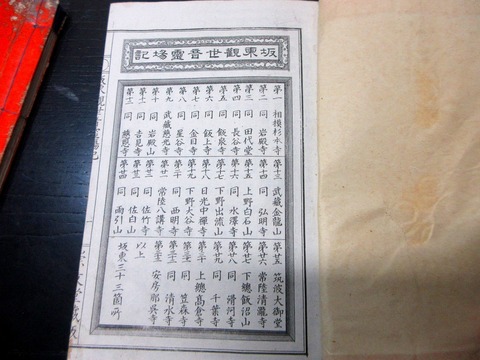 坂東觀世音靈塲記
第一 相模杉本寺
第二 同 岩殿寺
第三 同 田代堂
第四 同 長谷寺
第五 同 飯泉寺
第六 同 飯上寺
第七 同 金目寺
第八 同 星谷寺
第九 武藏慈光寺
第十 同 岩殿山
第十一 同 吉見寺
第十二 同 慈恩寺
第十三 武藏金龍山
第十四 同 弘明寺
第十五 上野白石山
第十六 同 水澤寺
第十七 下野出流山
第十八 日光中禪寺
第十九 下野大谷寺
第二十 同 西明寺
第廿一 常陸八溝寺
第廿二 同 佐竹寺
第廿三 同 佐白山
第廿四 同 雨引山
第廿五 筑波大御堂
第廿六 常陸清瀧寺
第廿七 下總飯沼山
第廿八 同 滑河寺
第廿九 同 千葉寺
第三十 上總高倉寺
第三十一 同 笠森寺
第三十二 同 清水寺
第三十三 安房那呉寺
以上
坂東三十三箇所